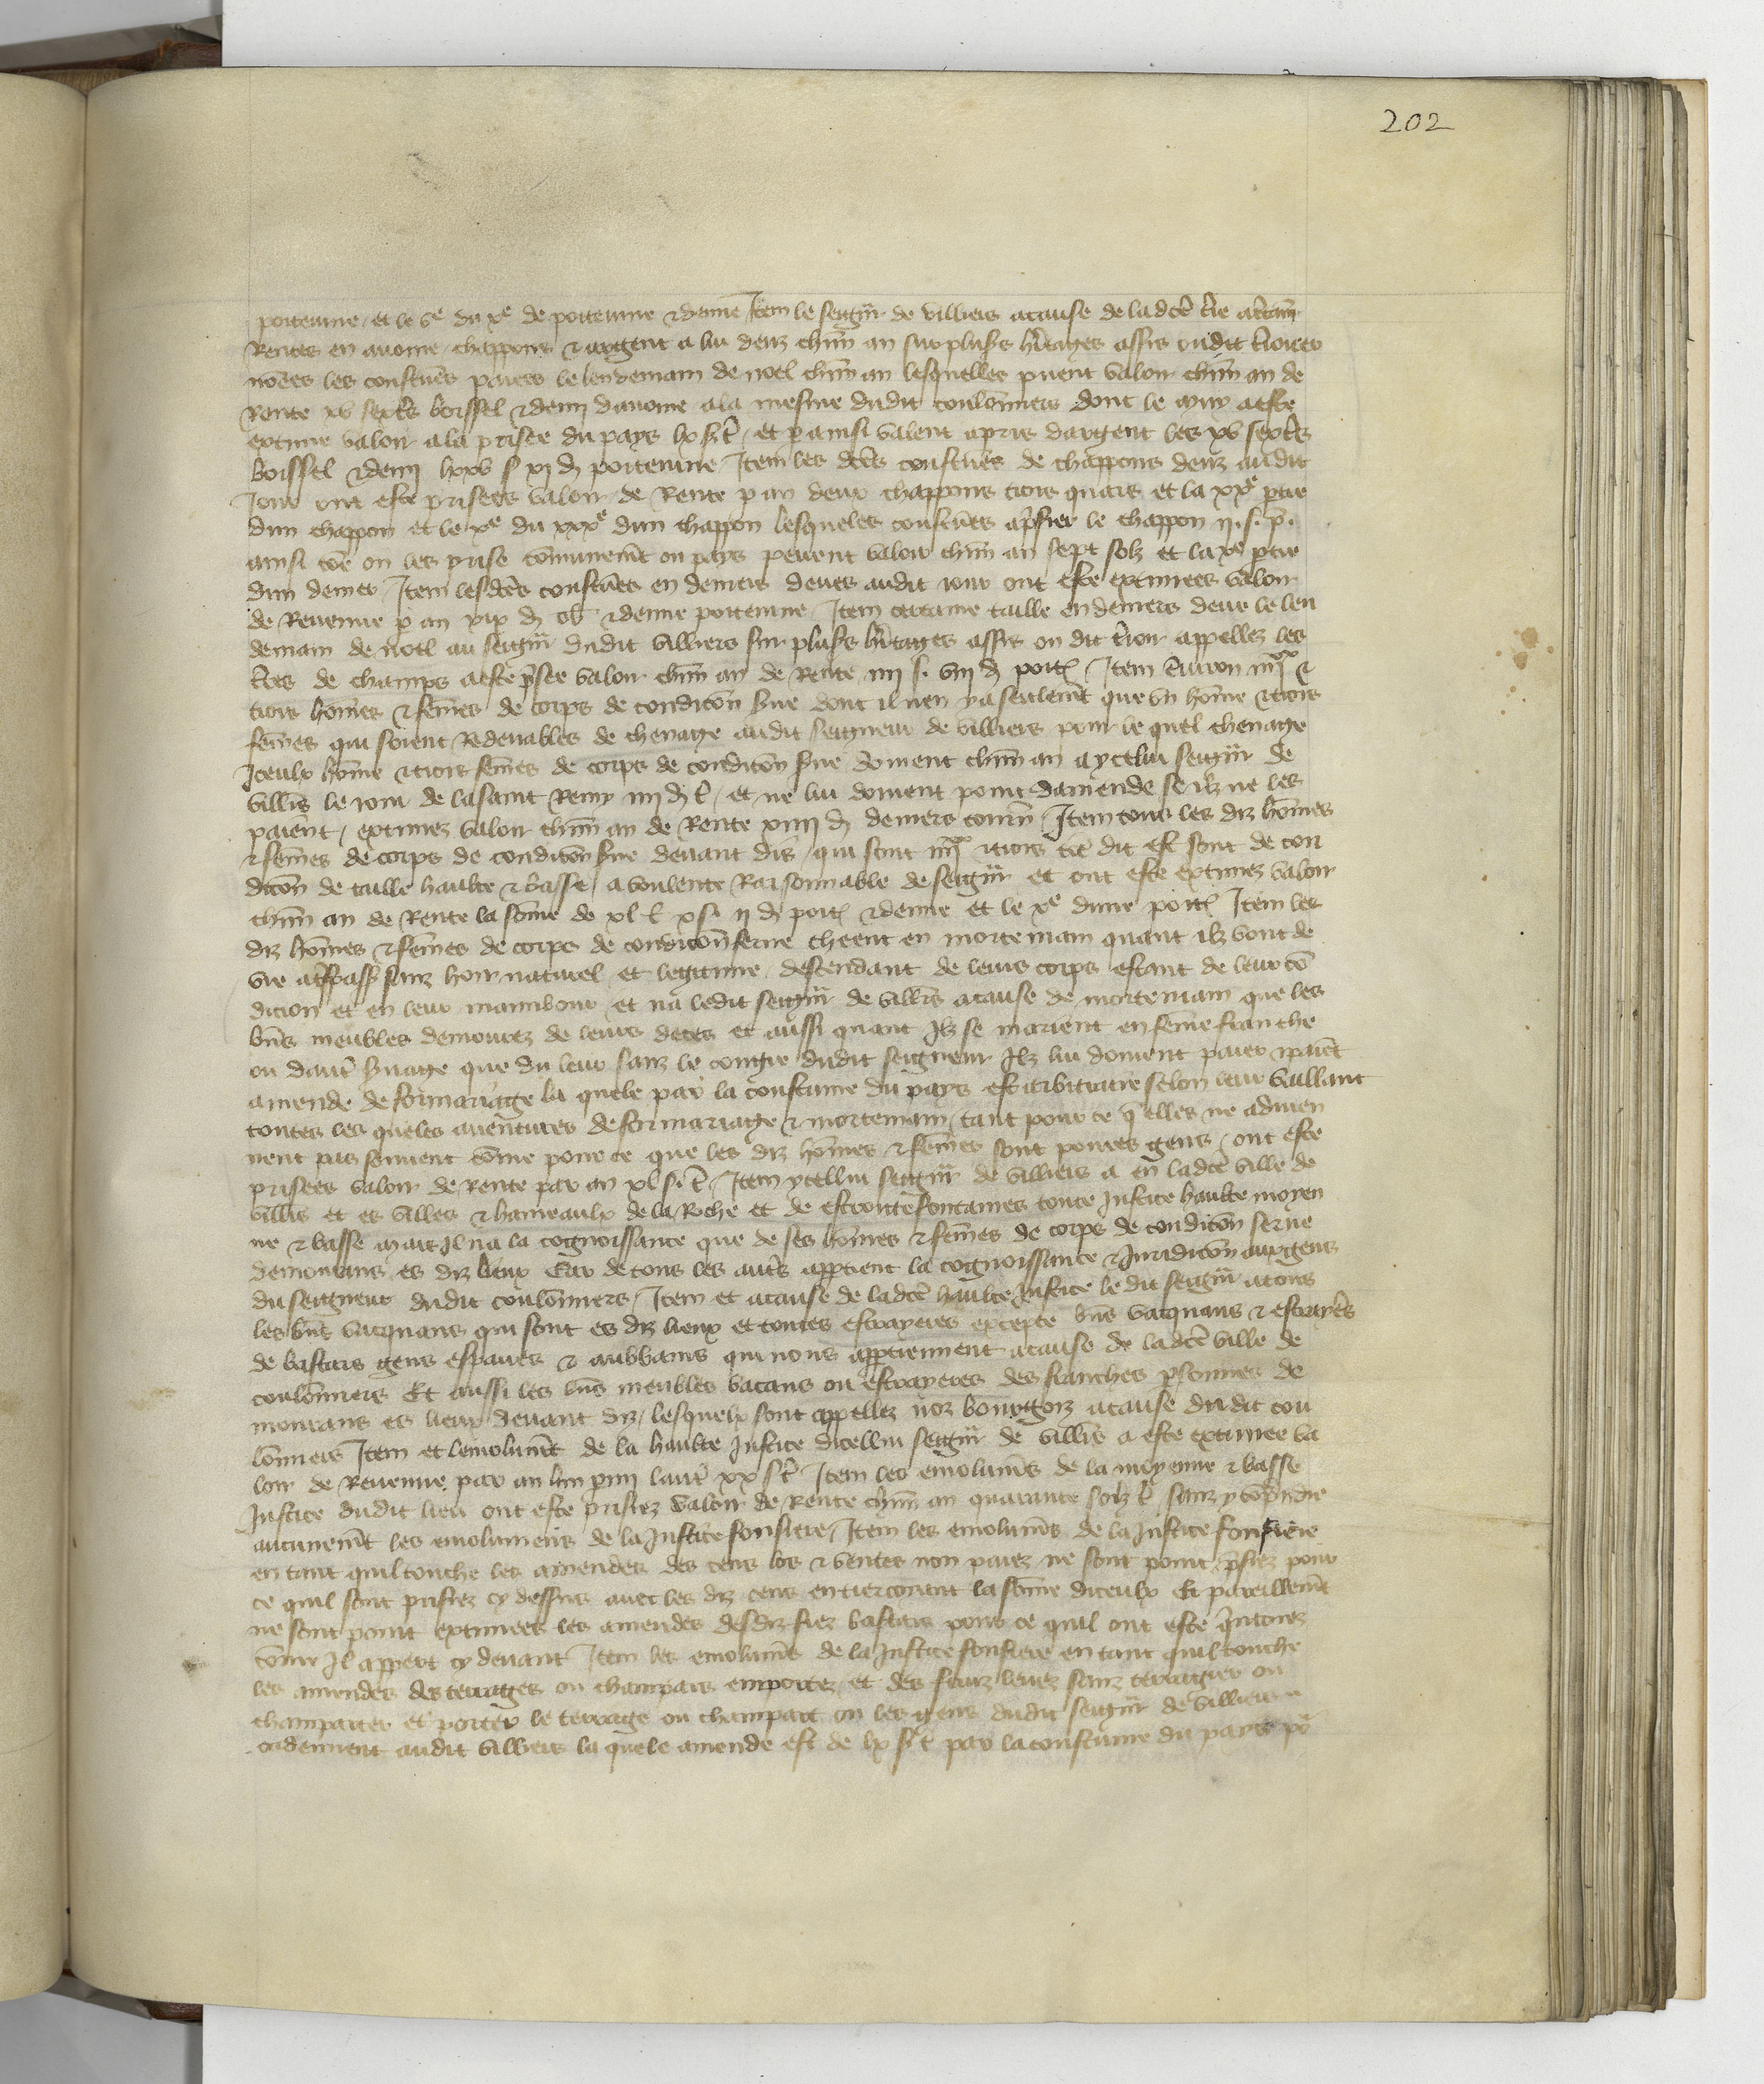 202
poitevine, et le ve du xe de poitevine & demie Item le seignr de villiers a cause de ladcē t̄re a c̄tain̄
Rentes en avoine, chappons & argent a lui deuz chūn an sur plus̄rs h̄itages assis ou dit t̄ouer
nōēes les coustūēs paiees le lendemain de noel chūn an lesquelles puent valoir chūn an de
Rente xv sext̄s boissel & demi davoine a la mesure dudit coulōmiers dont le muy a este
extime valoir a la prisee du pays lx s t̄, et p ainsi valent a pris dargent les xv sext̄s
boissel & demi lxxv s xj d poitevine, Item les dc̄ēs coustūēs de chappons deuz audit
Jour ont este prisees valoir de Rente p an deux chappons trois quars et la xxe p̄tie
dun chappon et le xe du xxxe dun chappon lesqueles coustūēs ap̄sier le chappon ij. s. p̄.
ainsi cōē on les prise cōmunem̄t ou pays peuent valoir chūn an sept solz et la xe p̄tie
dun denier, Item lesdc̄ēs coustūēs en deniers deues audit jour ont este extimees valoir
de Revenue p an xix d ob & demie poitevine, Item certaine taille en deniers deue le len
demain de noel au seignr dudit villiers sur plus̄rs h̄itages assis ou dit t̄ouer appellez les
t̄res de champs a este p̄see valoir chūn an de Rente iiij s. viij d poit̄, Item ēviron iiijxx &
trois hōmes & fēmes de corps de condicōn s̄ve dont il nen y a seulem̄t que un hōme & trois
fēmes qui soient Redevables de chevage audit seigneur de villiers pour le quel chevage
Iceulx hōme & trois fēmes de corps de condicōn s̄ve doivent chūn an a ycellui seignr de
vill̄rs le jour de la saint Remy iiij d t̄, et ne lui doivent point damende se ilz ne les
paient, extimez valoir chūn an de Rente xiiij d deniers tourn̄, Item tous les diz hōmes
& fēmes de corps de condicōn s̄ve devant dis, qui sont iiijxx & trois cōē dit est sont de con
dicōn de taille haulte & basse, a voulente Raisonnable de seignr et ont este extimez valoir
chūn an de Rente la sōme de xl l xs. ij d poit̄ & demie et le xe dune poit̄ Item les
diz hōmes & fēmes de corps de condicōn serve cheent en mortemain quant ilz vont de
vie a t̄spass̄ sanz hoir naturel et legitime, descendant de leurs corps estant de leur cō
dicion et en leur mainbour et na ledit seignr de vill̄rs a cause de mortemain que les
bn̄s meubles demourez de leurs deces et aussi quant Ilz se marient en fēme franche
ou daut̄ s̄vage que du leur sanz le congie dudit seigneur Ilz lui doivent paier & paiēt
amende de formariage la quele par la coustume du pays est arbitraire selon leur vaillant
toutes les queles aventures de formariage & mortemain, tant pour ce q̄ elles ne advien
nent pas souvent cōme pour ce que les diz hōmes & fēmes sont povres gens, ont este
prisees valoir de Rente par an xl s. t̄, Item ycellui seignr de villiers a en ladcē ville de
vill̄rs et es villes & hameaulx de la Roche et de escoutefontaines toute Justice haulte moyen
ne & basse mais Il na la cognoissance que de ses hōmes & fēmes de corps de condicōn serve
demourans es diz lieux Car de tous les aut̄s app̄tient la cognoissance & Juridicōn aux gens
du seigneur dudit coulōmiers, Item et a cause de ladcē haulte Justice le dit seignr a tous
les bn̄s vacquans qui sont es diz lieux et toutes estrayeres excepte bn̄s vacquans & estraȳēs
de bastars gens espaues & aubbains qui nous app̄tiennent a cause de ladcē ville de
coulōmiers Et aussi les bn̄s meubles vacans ou estrayeres des franches p̄sonnes de
mourans es lieux devant diz, lesquelx sont appellez noz bourgois a cause dudit cou
lōmiers Item et lemolumēt de la haulte Justice dicellui seignr de vill̄rs a este extimee va
loir de Revenue par an lun p̄mi lautr̄ xx s t̄ Item les emolumēs de la moyenne & basse
Justice dudit lieu ont este prisiez valoir de Rente chūn an quarante solz t̄, sanz y cōp̄ndre
aucunem̄t les emolumens de la Justice fonsiere, Item les emolumēs de la Justice fonsiere
en tant quil touche les amendes des cens los & ventes non paiez ne sont point p̄siez pour
ce quil sont prisiez cy dessus avec les diz cens en tiercoiant la sōme diceulx Et pareillem̄t
ne sont point extimees les amendes desdiz fiez bastars pour ce quil ont este
cōme Il appert cy devant Item les emolumēs de la Justice fonsiere en tant quil touche
les amendes des terrages ou champars emportez, et des fruiz levez sanz terragier ou
champarter et porter le terrage ou champart ou les gens dudit seignr de villiers
ordennent audit villiers la quele amende est de lx s t̄ par la coustume du pays po